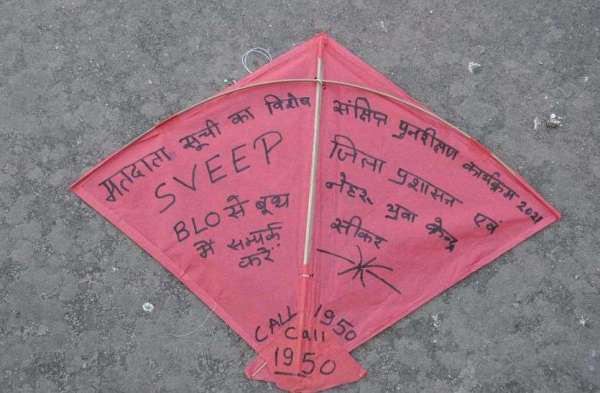 मतदाता सूची का विशेष संक्षिप्त पुनरीक्षण कार्यक्रम 2021
SVEEP
BLO से बूथ
में सम्पर्क
करें
जिला प्रशासन एवं
नेहरू युवा केन्द्र
सीकर
CALL 1950
Call
1950